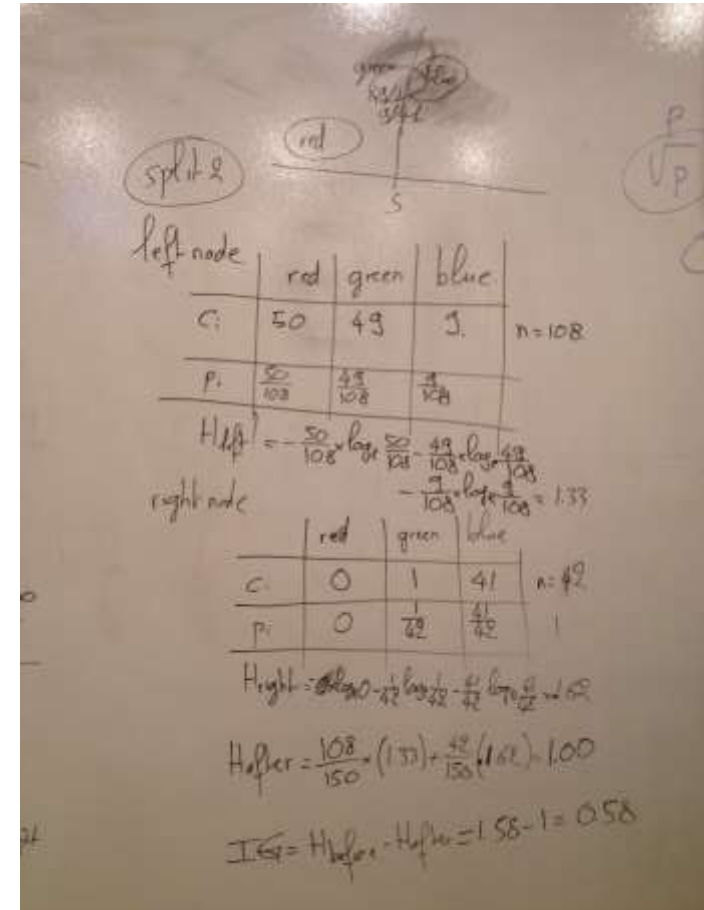 green blue
red
split 2
S
P
√P
left node
red green blue
Ci 50 49 9 n=108
Pi 50/108 49/108 9/108
H left = - 50/108 × log 50/108 - 49/108 × log 49/108
- 9/108 × log 9/108 = 1.33
right node
red green blue
Ci 0 1 41 n=42
Pi 0 1/42 41/42 1
Hright = log 0 - 1/42 log 1/42 - 41/42 log 41/42
Hafter = 108/150 × (1.33) + 42/150 (1.62) = 1.00
IG = Hbefore - Hafter = 1.58 - 1 = 0.58